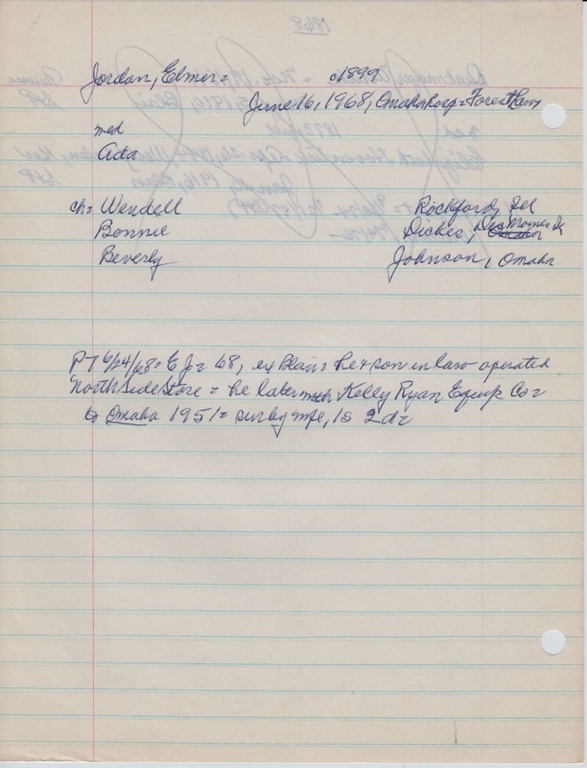 Jordan, Elmer = c1899
June 16, 1968, Omaha hosp = Forest Lawn
md
Ada
ch = Wendell Rockford, Ill
Bonnie Dickes, Des Moines Ia
Beverly Johnson, Omaha
PT 6/24/68 = EJ = 68, ex Blair = he & son in law operated
North Side Store = he later Kelly Ryan Equip Co =
to Omaha 1951 = sur by wife, 1s 2d =